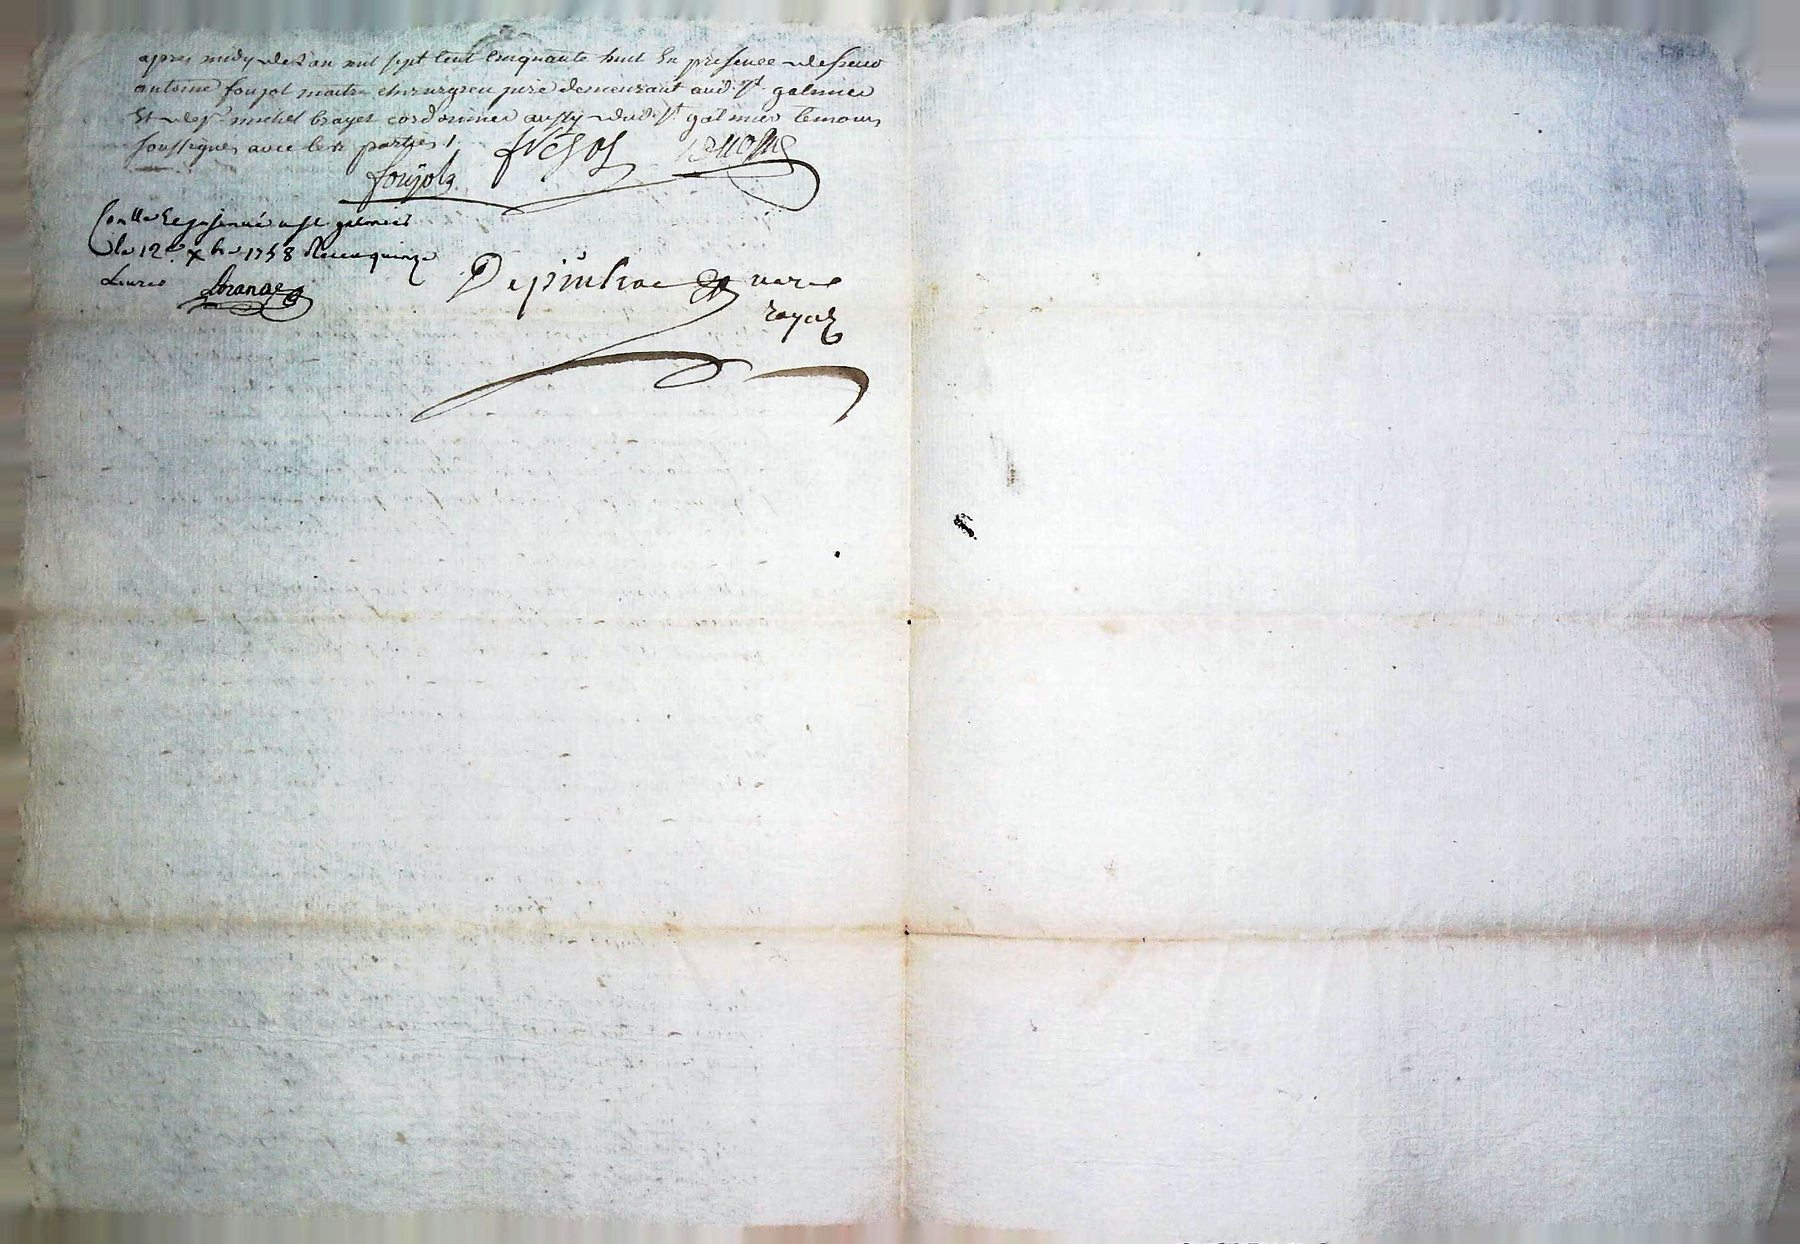 apres midy de l'an mil sept cent cinquante huit En presence de sieur
antoine foujol maitre chirurgien juré demeurant aud. st galmier
Et de sr michel brayet cordonnier aussy dud. st galmier temoins
soussignes avec les parties /.
foujols
Conllé Et a st galmier
le 12e xbre 1758 Recu quinze
Livres
Depinhac
royal